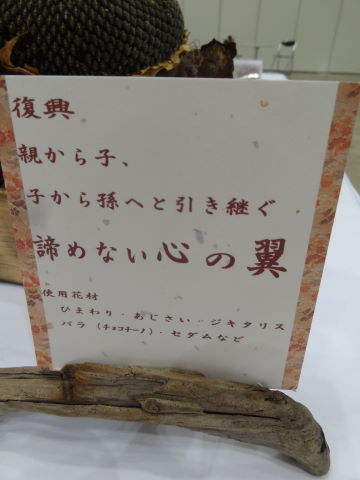 復興
親から子、
子から孫へと引き継ぐ
諦めない心の翼
使用花材
ひまわり・あじさい・ジキタリス
バラ（チョコチーノ）・セダムなど